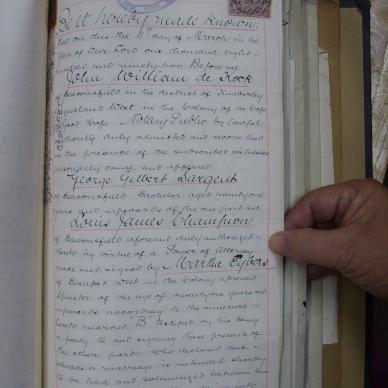 Be it hereby made known:
that on this the 11th day of March in the
Year of Our Lord one thousand eight
hundred and ninety two Before me
John William de Kock
of Beaconsfield in the district of Kimberley
Griqualand West in the Colony of the Cape
Good Hope Notary Public by lawful
authority duly admitted and sworn and
in the presence of the subscribed witnesses
personally came and appeared
George Gilbert Sargent
of Beaconsfield Bachelor aged twenty one
years and upwards of the one part and
Louis James Champion
of Beaconsfield aforesaid duly authorized
hereto by virtue of a Power of Attorney
made and signed by Martha Eybers
of Beaufort West in the Colony aforesaid
Spinster of the age of twenty one years and
upwards according to the annexure
hereto marked B testified by his being
a party to and signing these presents of
the other part who declared that
whereas a marriage is intended shortly
to be had and solemnized between